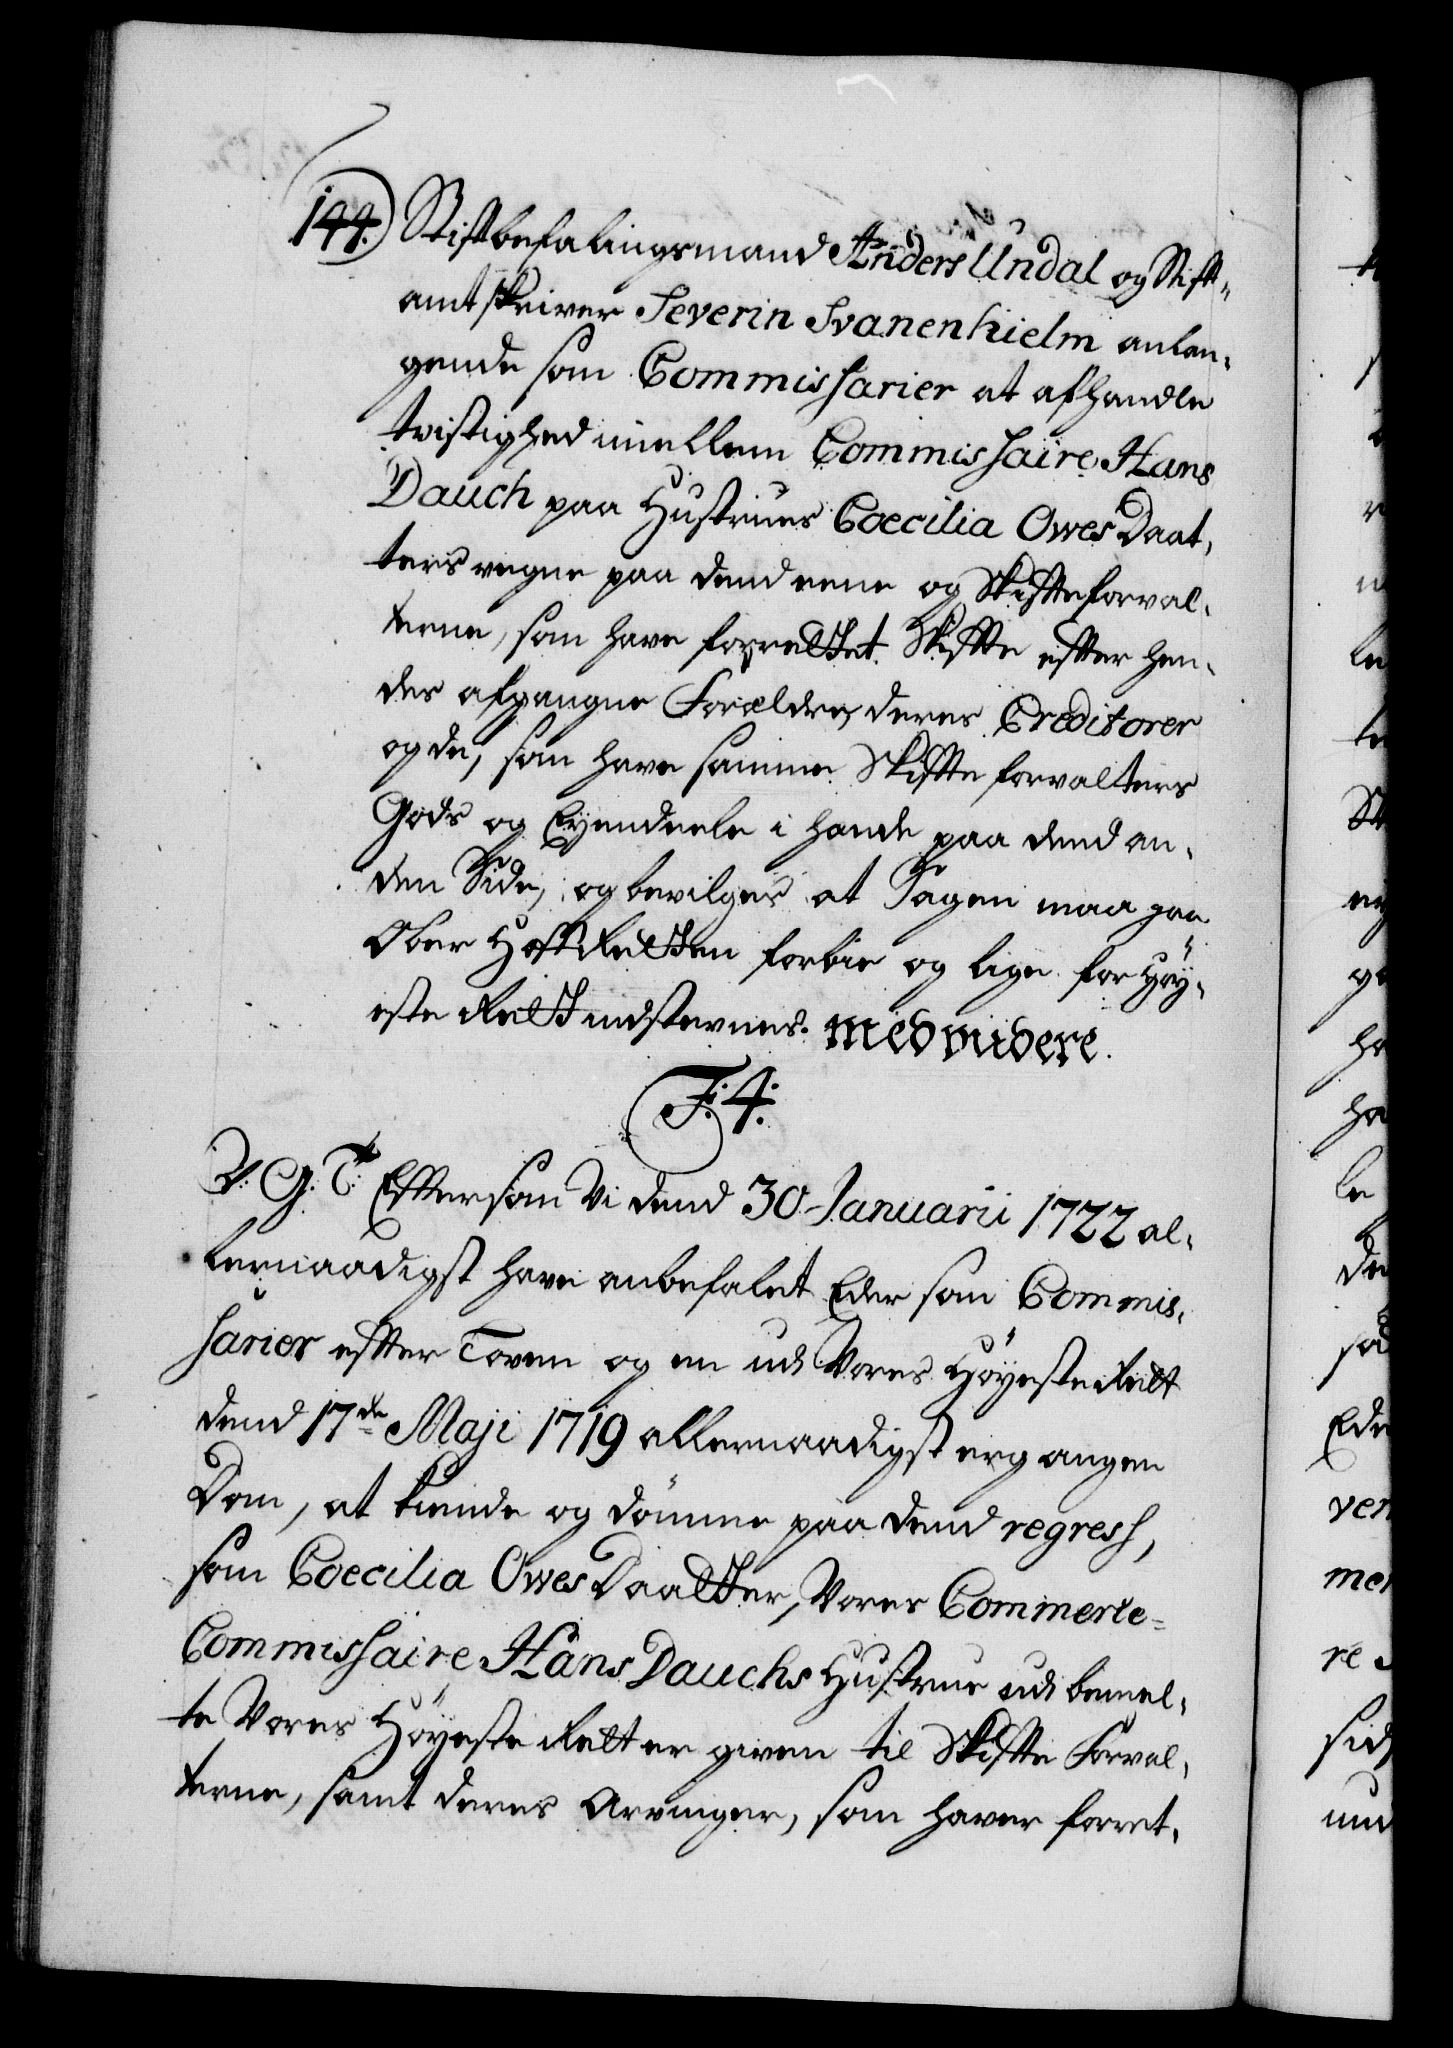 144. Stiftbefalingsmand Anders Undal og Stift-
amtskriver Severin Svanenhielm anlan-
gende som Commissarier at afhandle
tvistighed imellem Commissaire Hans
Dauch paa Hustrues Coecilia Owes Daat-
ters vegne paa dend eene og Skifteforval-
terne, som have forrettet Skifte efter hen-
des afgangne Forældre, deres Creditorer
og de, som have samme Skifte forvalters
Gods og Eyendeele i hænde paa dend an-
den Side, og bevilges at Sagen maa gaa
Ober HoffRetten forbie og lige for Höy-
este Rett indstevnes. med videre.
F: 4:
V. G. T: Eftersom Vi dend 30 Januarii 1722 al-
lernaadigst have anbefalet Eder som Commis-
sarier efter Loven og en udi Vores Höyeste Rett
dend 17de Maji 1719 allernaadigst ergangen
Dom, at kiende og dömme paa dend regress,
som Coecilia Owes Daatter, Vores Commerce-
Commissaire Hans Dauchs Hustrue udi bemel-
te Vores Höyeste Rett er given til Skifte Forval-
terne, samt deres Arvinger, som haver forret-